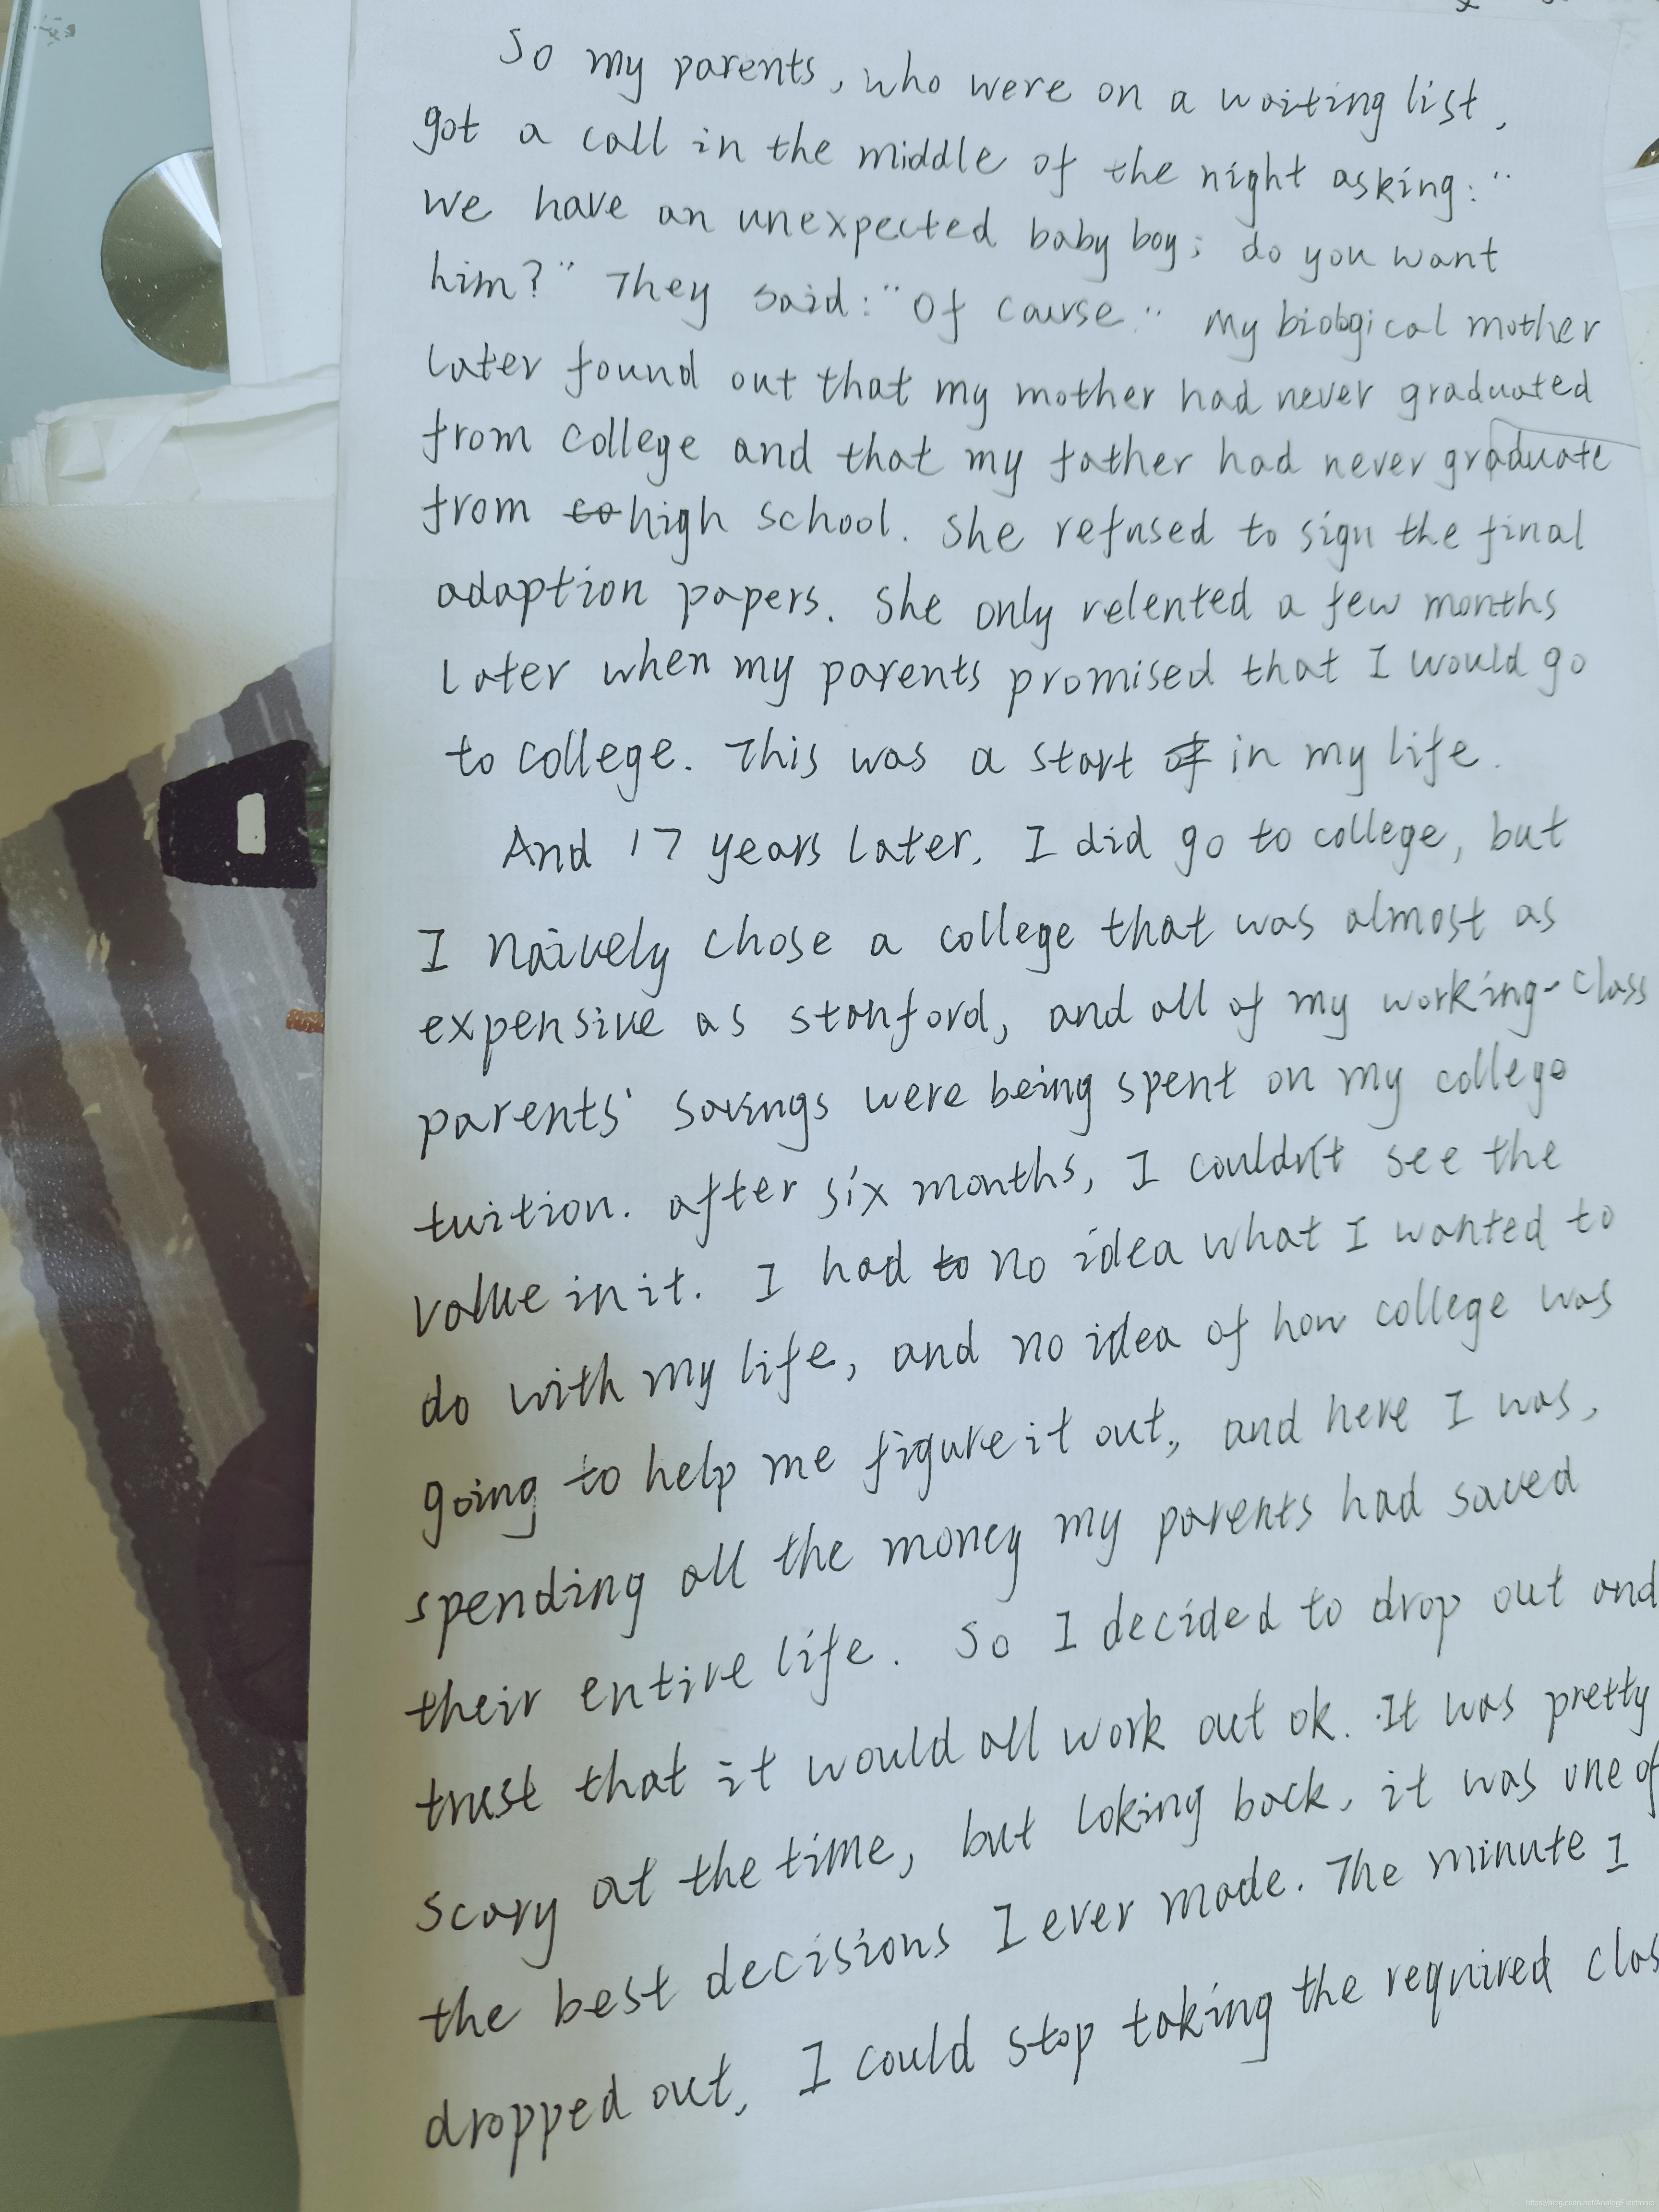 So my parents, who were on a waiting list,
got a call in the middle of the night asking: "
we have an unexpected baby boy; do you want
him?" They said: "Of course." My biological mother
later found out that my mother had never graduated
from college and that my father had never graduate
from co high school. She refused to sign the final
adaption papers. She only relented a few months
later when my parents promised that I would go
to college. This was a start of in my life.
And 17 years later, I did go to college, but
I naively chose a college that was almost as
expensive as stanford, and all of my working-class
parents' savings were being spent on my college
tuition. after six months, I couldn't see the
value in it. I had to no idea what I wanted to
do with my life, and no idea of how college was
going to help me figure it out, and here I was,
spending all the money my parents had saved
their entire life. So I decided to drop out and
trust that it would all work out ok. It was pretty
scary at the time, but loking back, it was one of
the best decisions I ever made. The minute I
dropped out, I could stop taking the required clas
https://blog.csdn.net/AnalogElectronic